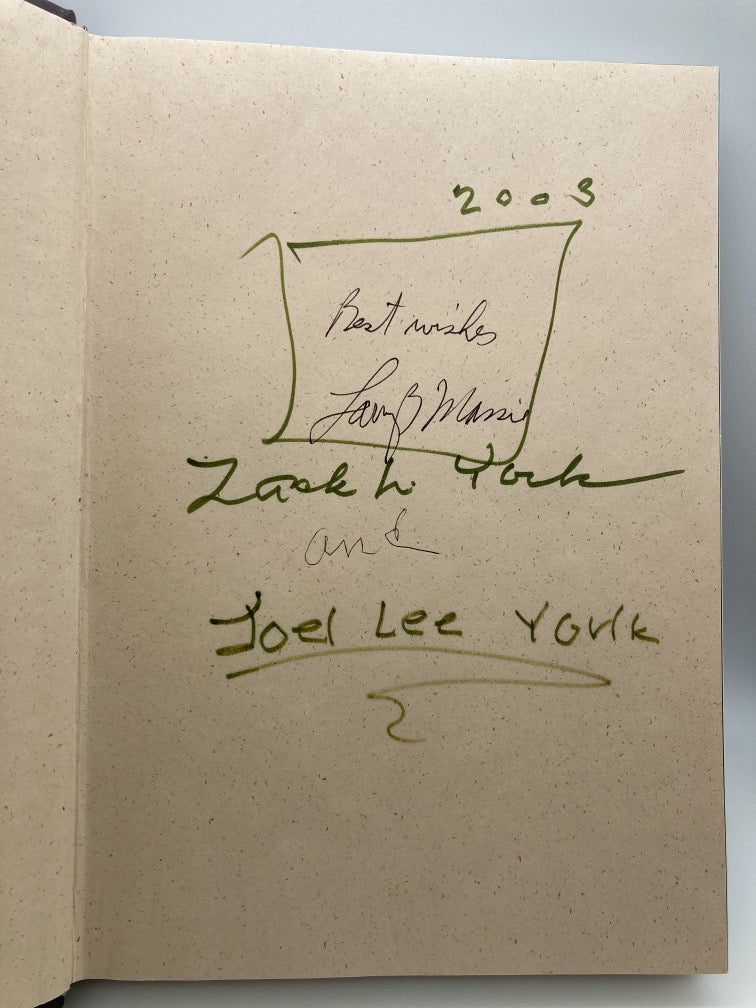 2003
Best wishes
Larry B Massie
Zack L. York
and
Joel Lee York